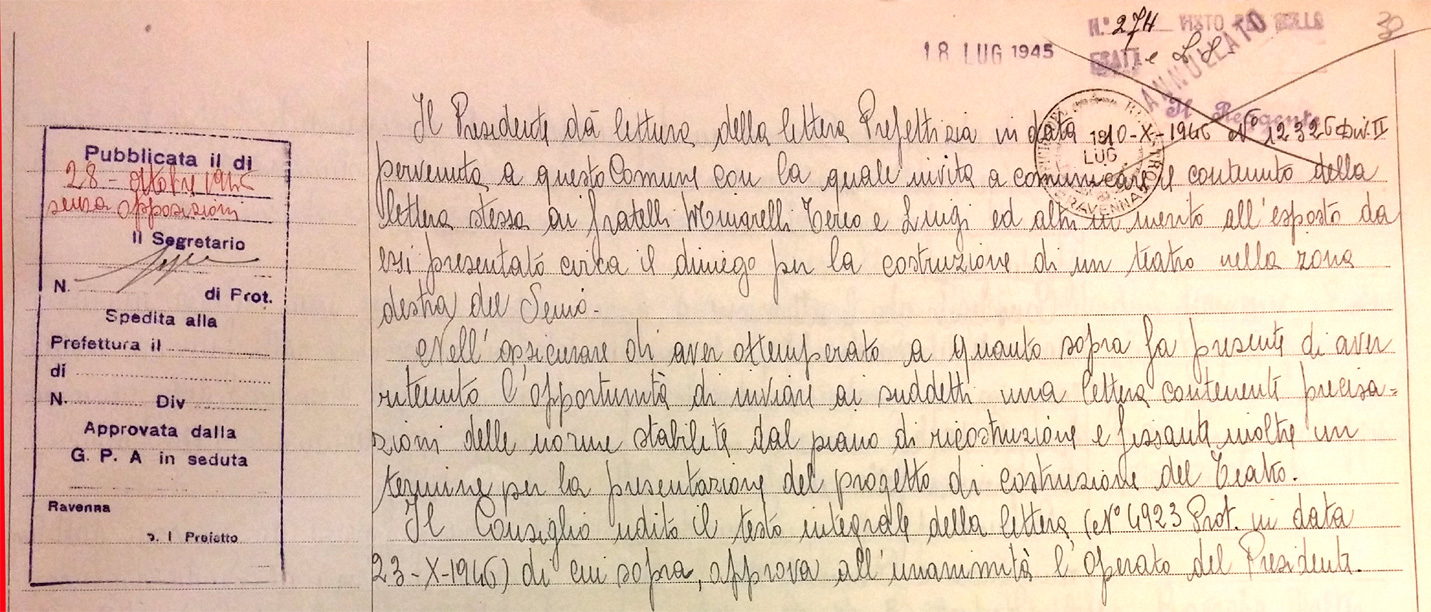 N.° 274 VISTO PER BOLLO
18 LUG 1945
ESATT e L.
ANNULLATO
Il Reggente
39
LUG.
RAVENNA
Pubblicata il di
28 - ottobre 1946
senza opposizioni
Il Segretario
N. di Prot.
Spedita alla
Prefettura il
di
N. Div
Approvata dalla
G. P. A in seduta
Ravenna
p. I Prefetto
Il Presidente dà lettura della lettera Prefettizia in data 10-X-1946 N° 12326 Div. II
pervenuta a questo Comune con la quale invita a comunicare il contenuto della
lettera stessa ai fratelli Tereo e Luigi ed altri in merito all'esposto da
essi presentato circa il diniego per la costruzione di un teatro nella zona
destra del Senio.
Nell'assicurare di aver ottemperato a quanto sopra fa presente di aver
ritenuto l'opportunità di inviare ai suddetti una lettera contenente precisa=
zioni delle norme stabilite dal piano di ricostruzione e fissante inoltre un
termine per la presentazione del progetto di costruzione del Teatro.
Il Consiglio udito il testo integrale della lettera (N° 4923 Prot. in data
23-X-1946) di cui sopra, approva all'unanimità l'operato del Presidente.